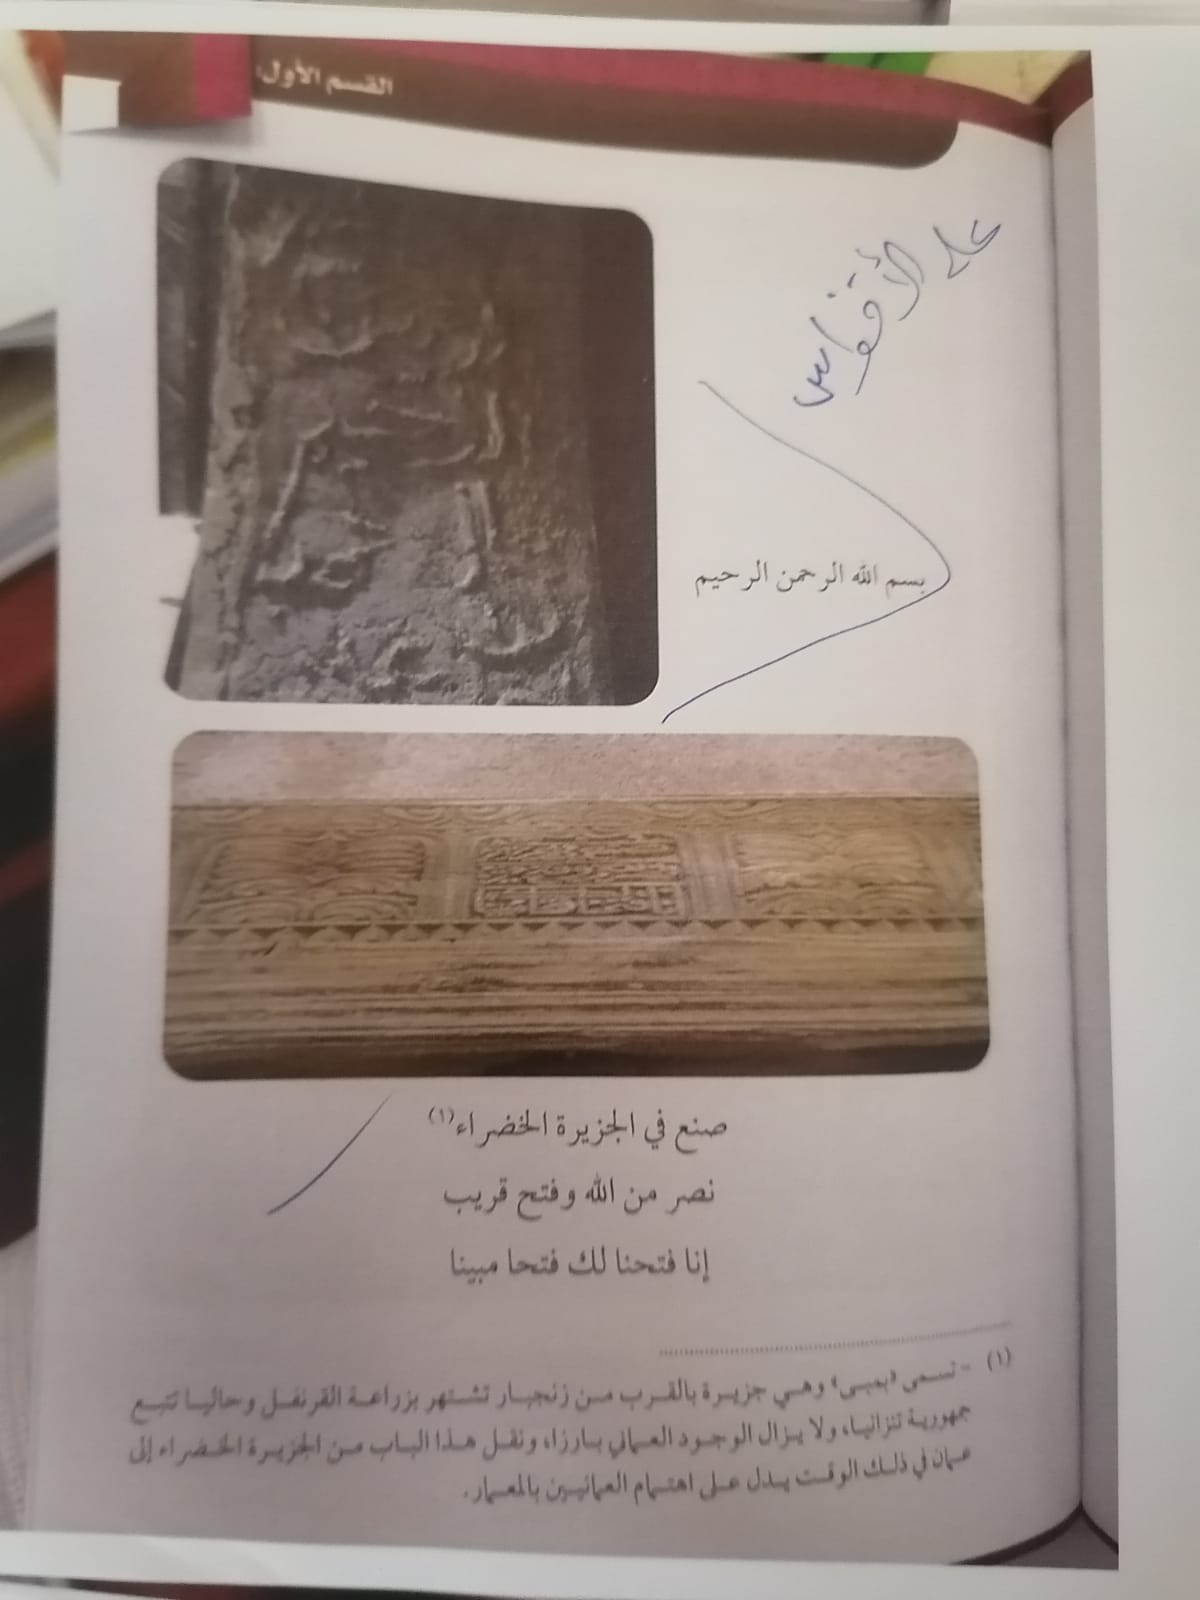 القسم الأول:
على الأقواس
بسم الله الرحمن الرحيم
صنع في الجزيرة الخضراء(١)
نصر من الله وفتح قريب
إنا فتحنا لك فتحا مبينا
(١) - تسمى «بمبى» وهي جزيرة بالقرب من زنجبار تشتهر بزراعة القرنفل وحاليا تتبع
جمهورية تنزانيا، ولا يزال الوجود العماني بارزا، ونقل هذا الباب من الجزيرة الخضراء إلى
عمان في ذلك الوقت يدل على اهتمام العمانيين بالمعمار.